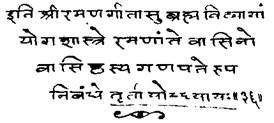 इति श्रीरमणगीतासु ब्रह्मविद्यायां
योगशास्त्रे रमणांते वासिनो
वासिष्ठस्य गणपतेरुप
निबंधे तृतीयोऽध्यायः॥३६॥